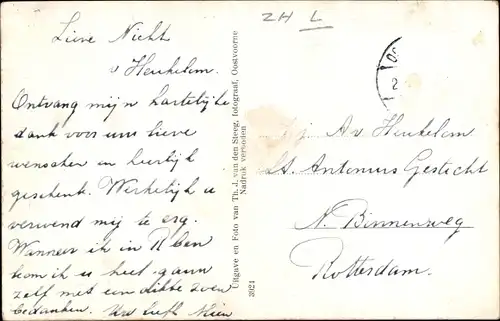 ZH L
Lieve Nicht
v Heukelem.
Ontvang mijn hartelijke
dank voor uw lieve
wenschen en heerlijk
geschenk. Werkelijk u
verwend mij te erg.
Wanneer ik in R ben
kom ik u heel gauw
zelf met een dikke zoen
bedanken. Uw liefh Mien
Uitgave en Foto van Th. J. van den Steeg, fotograaf, Oostvoorne
Nadruk verboden
3024
Mej. A v Heukelem
St. Antonius Gesticht
N. Binnenweg
Rotterdam.